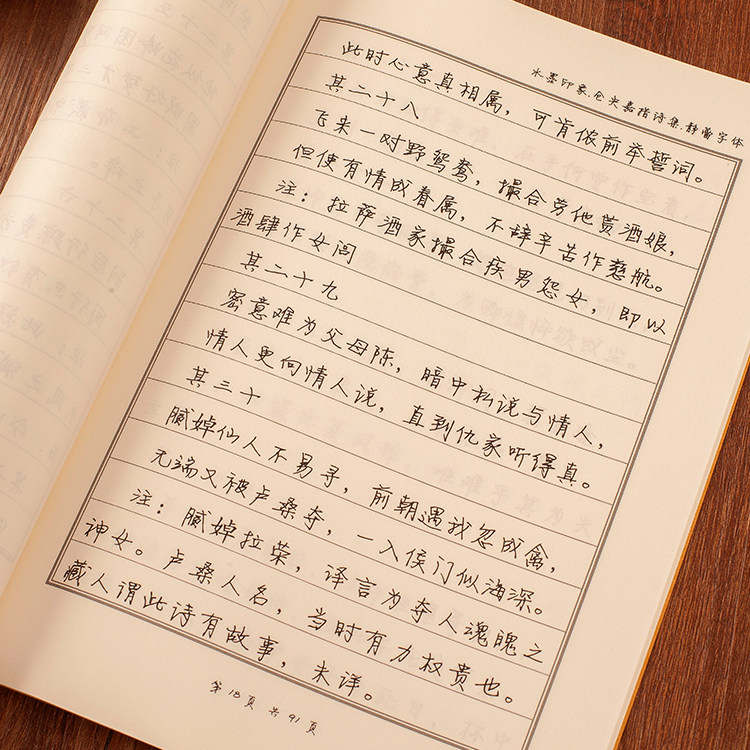 水墨印象.仓央嘉措诗集.静蕾字体
此时心意真相属，可肯侬前举誓词。
其二十八
飞来一对野鸳鸯，撮合劳他贳酒娘，
但使有情成眷属，不辞辛苦作慈航。
注：拉萨酒家撮合痴男怨女，即以
酒肆作女闾
其二十九
密意难为父母陈，暗中私说与情人，
情人更向情人说，直到仇家听得真。
其三十
腻婥仙人不易寻，前朝遇我忽成禽，
无端又被卢桑夺，一入侯门似海深。
注：腻婥拉荣，译言为夺人魂魄之
神女。卢桑人名，当时有力权贵也。
藏人谓此诗有故事，未详。
第18页 共91页